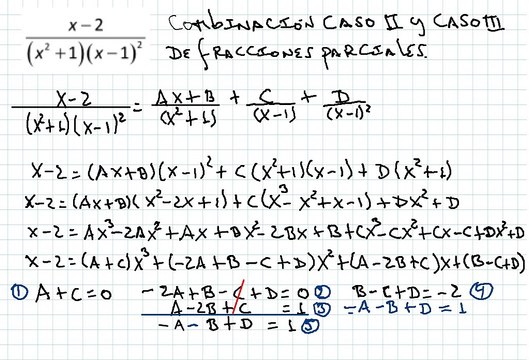 x-2 / (x²+1)(x-1)²
COMBINACIÓN CASO II y CASO III
DE fRACCIONES PARCIALES.
X-2 / (X²+1)(X-1)² = AX+B / (X²+1) + C / (X-1) + D / (X-1)²
X-2 = (AX+B)(X-1)² + C(X²+1)(X-1) + D(X²+1)
X-2 = (AX+B)(X²-2X+1) + C(X³-X²+X-1) + DX²+D
X-2 = AX³-2AX²+AX+BX²-2BX+B+CX³-CX²+CX-C+DX²+D
X-2 = (A+C)X³+(-2A+B-C+D)X²+(A-2B+C)X+(B-C+D)
① A+C=0
-2A+B-C+D=0 ②
A-2B+C =1 ③
-A-B+D=1 ⑤
B-C+D=-2 ④
-A-B+D=1